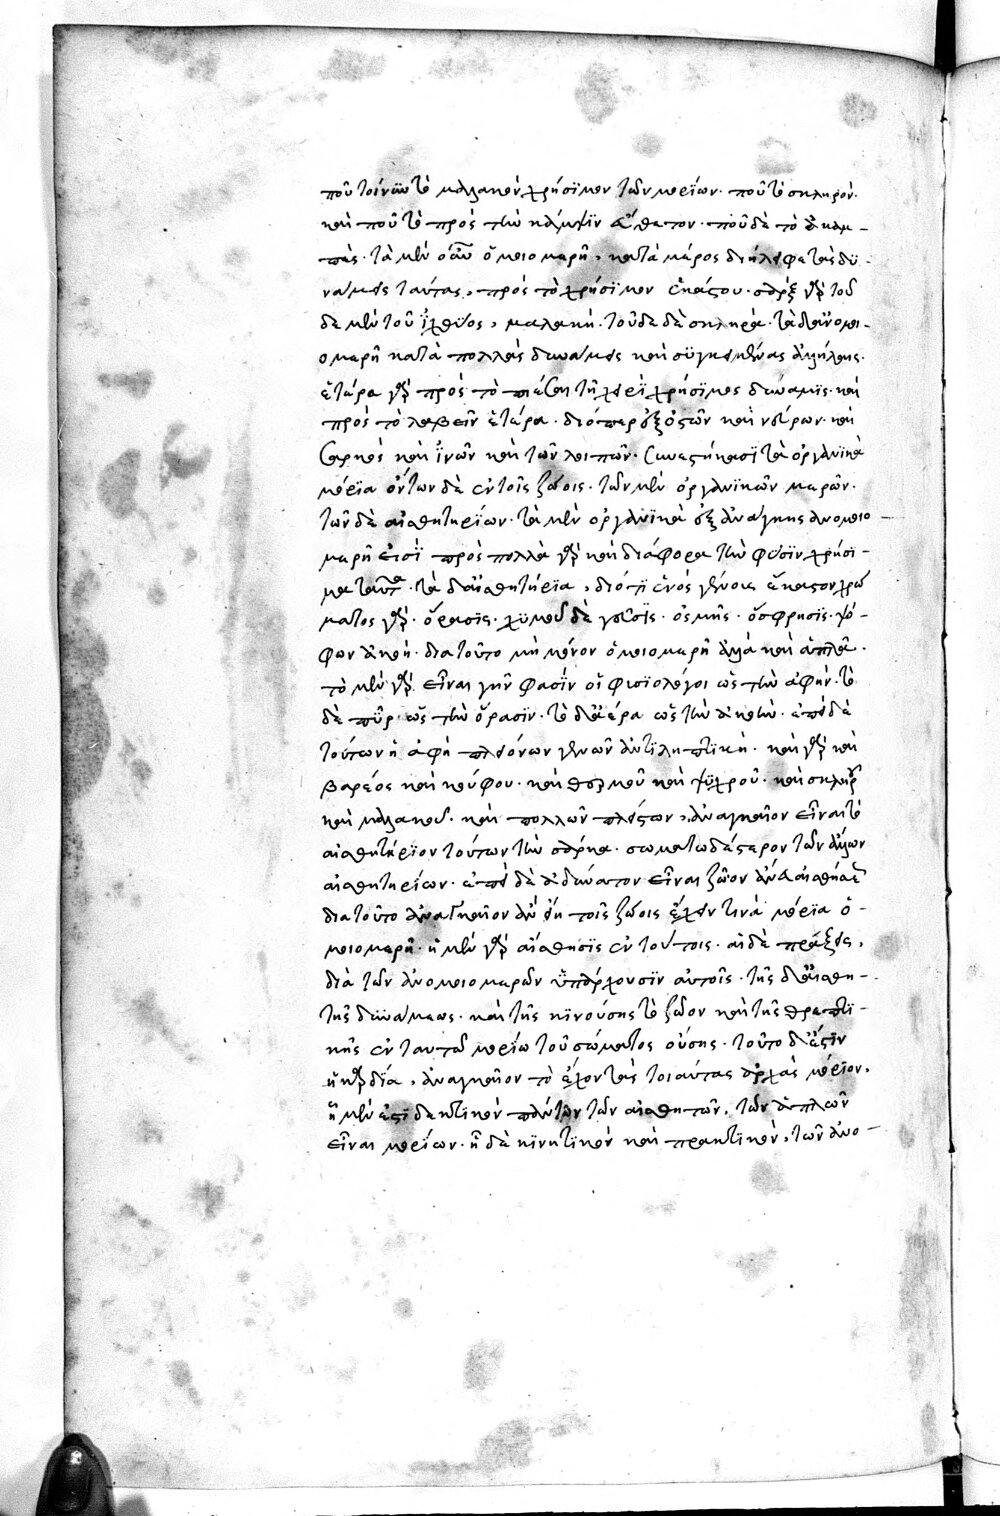 ποῦ τοίνυν τὸ μαλακὸν χρήσϊμον τῶν μορίων· ποῦ τὸ σκληρόν·
καὶ ποῦ τὸ πρὸς τὴν κάμψϊν εὔθετον· ποῦ δὲ τὸ ἄκαμ-
πτὲς· τὰ μὲν οὖν ὁμοιομερῆ, κατὰ μέρος διείληφε τὰς δυ-
νάμεις ταύτας, πρὸς τὸ χρήσϊμον ἑκάστου· σὰρξ γὰρ τοῦ
δε μὲν τοῦ ἰχθύος, μαλακή· τοῦδε δὲ σκληρά· τὰ δ' ἀνομοι-
ομερῆ κατὰ πολλὰς δυνάμεις καὶ συγκειμένας ἀλλήλαις·
ἑτέρα γὰρ πρὸς τὸ πιέσαι τῇ χειρὶ χρήσϊμος δύναμϊς· καὶ
πρὸς τὸ λαβεῖν ἑτέρα· διόπερ ἐξ ὀστῶν καὶ νεύρων· καὶ
σαρκὸς καὶ ἰνῶν καὶ τῶν λοιπῶν· συνεστήκασϊ τὰ ὀργανϊκὰ
μόρϊα ὄντων δὲ ἐν τοῖς ζώοις· τῶν μὲν ὀργανϊκῶν μερῶν·
τῶν δὲ αἰσθητηρίων· τὰ μὲν ὀργανϊκὰ ἐξ ἀνάγκης ἀνομοιο-
μερῆ εἰσϊ πρὸς πολλὰ γὰρ καὶ διάφορα τὴν φύσϊν χρήσϊ-
μα ταῦτα· τὰ δ' αἰσθητήρϊα, διότϊ ἑνὸς γένους ἕκαστον χρώ
ματος γὰρ· ὅρασϊς· χϋμοῦ δὲ γεῦσϊς· ὀσμῆς· ὄσφρησϊς· ψό-
φων ἀκοή· διατοῦτο μὴ μόνον ὁμοιομερῆ ἀλλὰ καὶ ἁπλᾶ·
τὸ μὲν γὰρ εἶναι γῆν φασϊν οἱ φυσϊολόγοι ὡς τὴν ἁφήν· τὸ
δὲ πῦρ· ὡς τὴν ὅρασϊν· τὸ δ' ἀέρα ὡς τὴν ἀκοὴν· ἐπεὶ δὲ
τούτων ἡ ἁφὴ πλειόνων γενῶν ἀντϊληπτϊκή· καὶ γὰρ καὶ
βαρέος καὶ κούφου· καὶ θερμοῦ καὶ ψϋχροῦ· καὶ σκληροῦ
καὶ μαλακοῦ· καὶ πολλῶν πλείστων, ἀναγκαῖον εἶναι τὸ
αἰσθητήρϊον τούτων τὴν σάρκα· σωματωδέστερον τῶν ἄλλων
αἰσθητηρίων· ἐπεὶ δὲ ἀδύνατον εἶναι ζῶον ἄνευ αἰσθήσεως
διατοῦτο ἀναγκαῖον ἂν εἴη τοῖς ζώοις ἔχειν τινὰ μόρϊα ὁ-
μοιομερῆ· ἡ μὲν γὰρ αἴσθησϊς ἐν τούτοις· αἱ δὲ πράξεις,
διὰ τῶν ἀνομοιομερῶν ὑπάρχουσϊν αὐτοῖς· τῆς δ' αἰσθη-
τῆς δυνάμεως· καὶ τῆς κϊνούσης τὸ ζῶον καὶ τῆς θρεπτϊ-
κῆς ἐν ταυτῶ μορίω τοῦ σώματος οὔσης· τοῦτο δ' ἐστϊν
ἡ καρδία, ἀναγκαῖον τὸ ἔχον τὰς τοιαύτας ἀρχὰς μόρϊον,
ᾗ μέν ἐστϊ δεκτϊκὸν πάντων τῶν αἰσθητῶν, τῶν ἁπλῶν
εἶναι μορίων· ᾗ δὲ κϊνητϊκὸν καὶ πρακτϊκὸν, τῶν ἀνο-